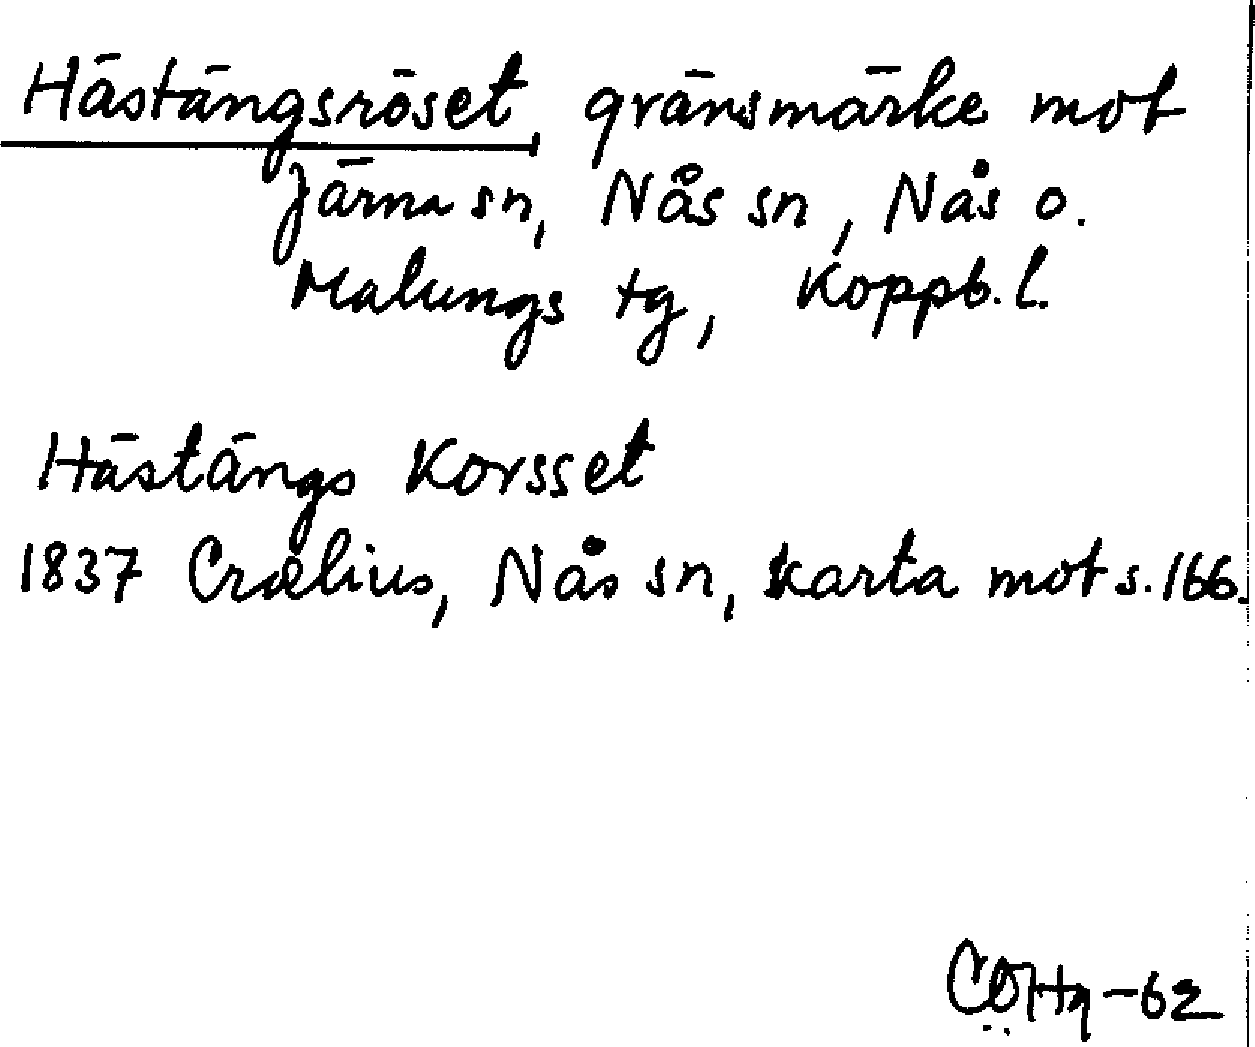 Hästängsröset, gränsmärke mot
Järna sn, Nås sn, Nås o.
Malungs tg, Koppb. l.
Hästängs Korsset
1837 Crælius, Nås sn, karta mot s. 166.
CÖHg -62